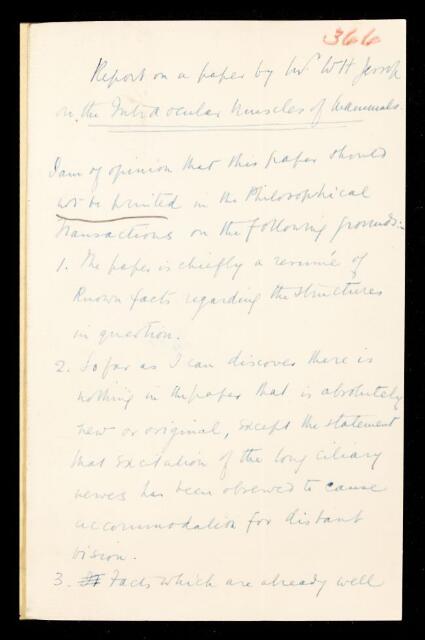 366
Report on a paper by Mr W H Jessop
on the Intraocular Muscles of Mammals.
I am of opinion that this paper should
not be printed in the Philosophical
Transactions on the following grounds:-
1. The paper is chiefly a resumé of
known facts regarding the structures
in question.
2. So far as I can discover there is
nothing in the paper that is absolutely
new or original, except the statement
that excitation of the long ciliary
nerves has been observed to cause
accommodation for distant
vision.
3. Facts which are already well